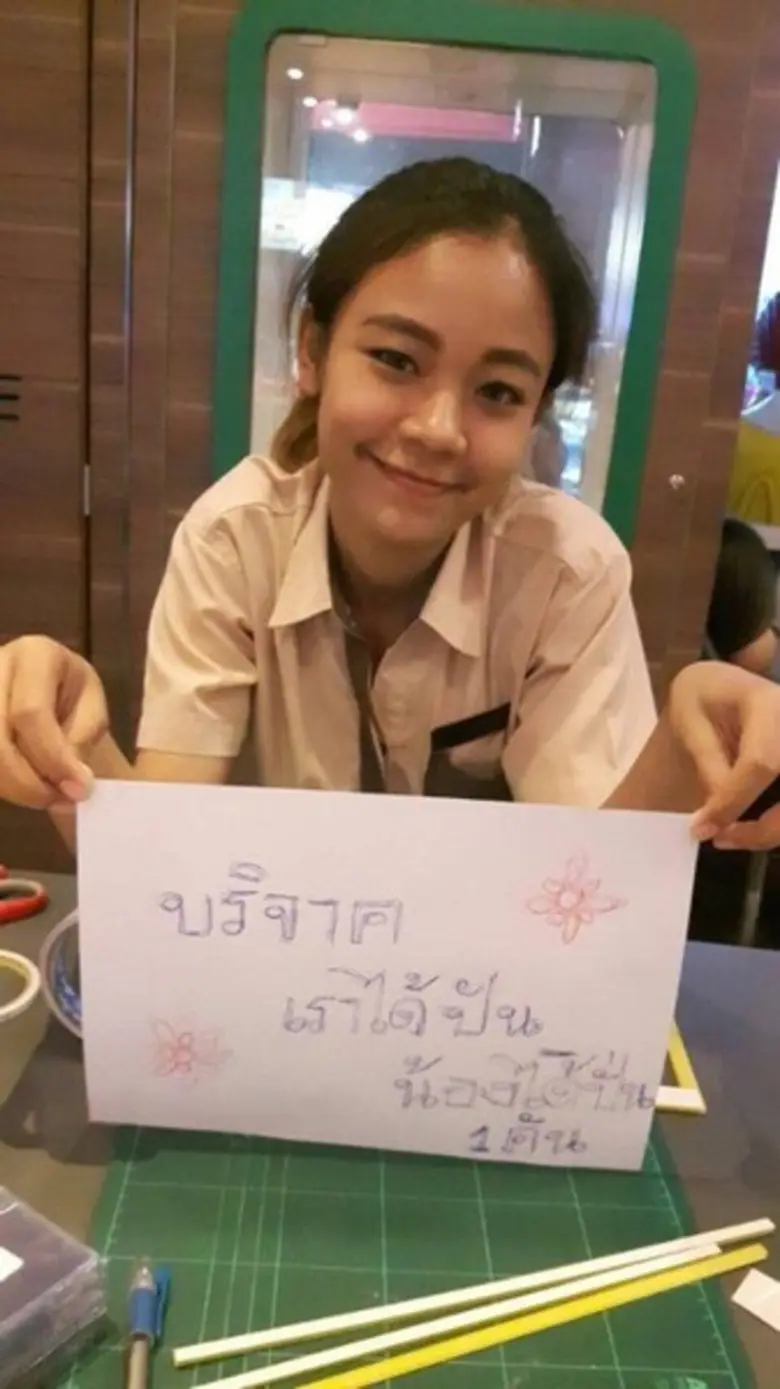 บริจาค
เราได้ปัน
น้องได้ปั่น
1 คัน